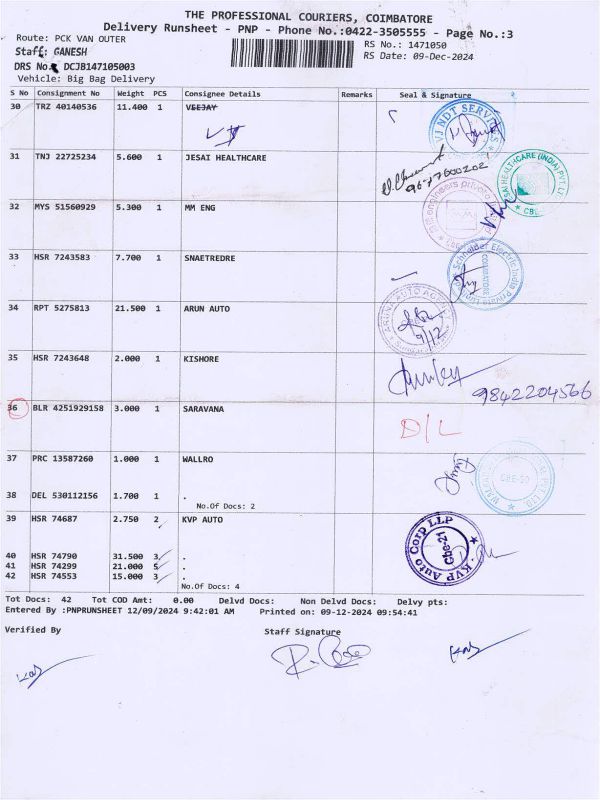 THE PROFESSIONAL COURIERS, COIMBATORE
Delivery Runsheet - PNP - Phone No.:0422-3505555 - Page No.:3
Route: PCK VAN OUTER
RS No.: 1471050
Staff: GANESH
RS Date: 09-Dec-2024
DRS No. DCJB147105003
Vehicle: Big Bag Delivery
S No Consignment No Weight PCS Consignee Details Remarks Seal & Signature
30 TRZ 40140536 11.400 1 VEEJAY
VJ NDT SERVICES
31 TNJ 22725234 5.600 1 JESAI HEALTHCARE
32 MYS 51560929 5.300 1 MM ENG
33 HSR 7243583 7.700 1 SNAETREDRE
Schneider Electric India Private Limited
COIMBATORE
34 RPT 5275813 21.500 1 ARUN AUTO
9/12
35 HSR 7243648 2.000 1 KISHORE
9842204566
36 BLR 4251929158 3.000 1 SARAVANA
D/L
37 PRC 13587260 1.000 1 WALLRO
38 DEL 530112156 1.700 1 .
No.Of Docs: 2
39 HSR 74687 2.750 2 KVP AUTO
KVP Auto Corp LLP
Cbe-21
40 HSR 74790 31.500 3 .
41 HSR 74299 21.000 5 .
42 HSR 74553 15.000 3 .
No.Of Docs: 4
Tot Docs: 42 Tot COD Amt: 0.00 Delvd Docs: Non Delvd Docs: Delvy pts:
Entered By :PNPRUNSHEET 12/09/2024 9:42:01 AM Printed on: 09-12-2024 09:54:41
Verified By
Staff Signature